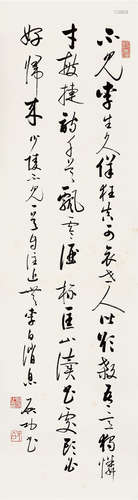 不見李生久佯狂真可哀世人皆欲殺吾意獨憐
才敏捷詩千首飄零酒一杯匡山讀書處頭白
好歸來 少陵不見一首自注近無李白消息 启功书